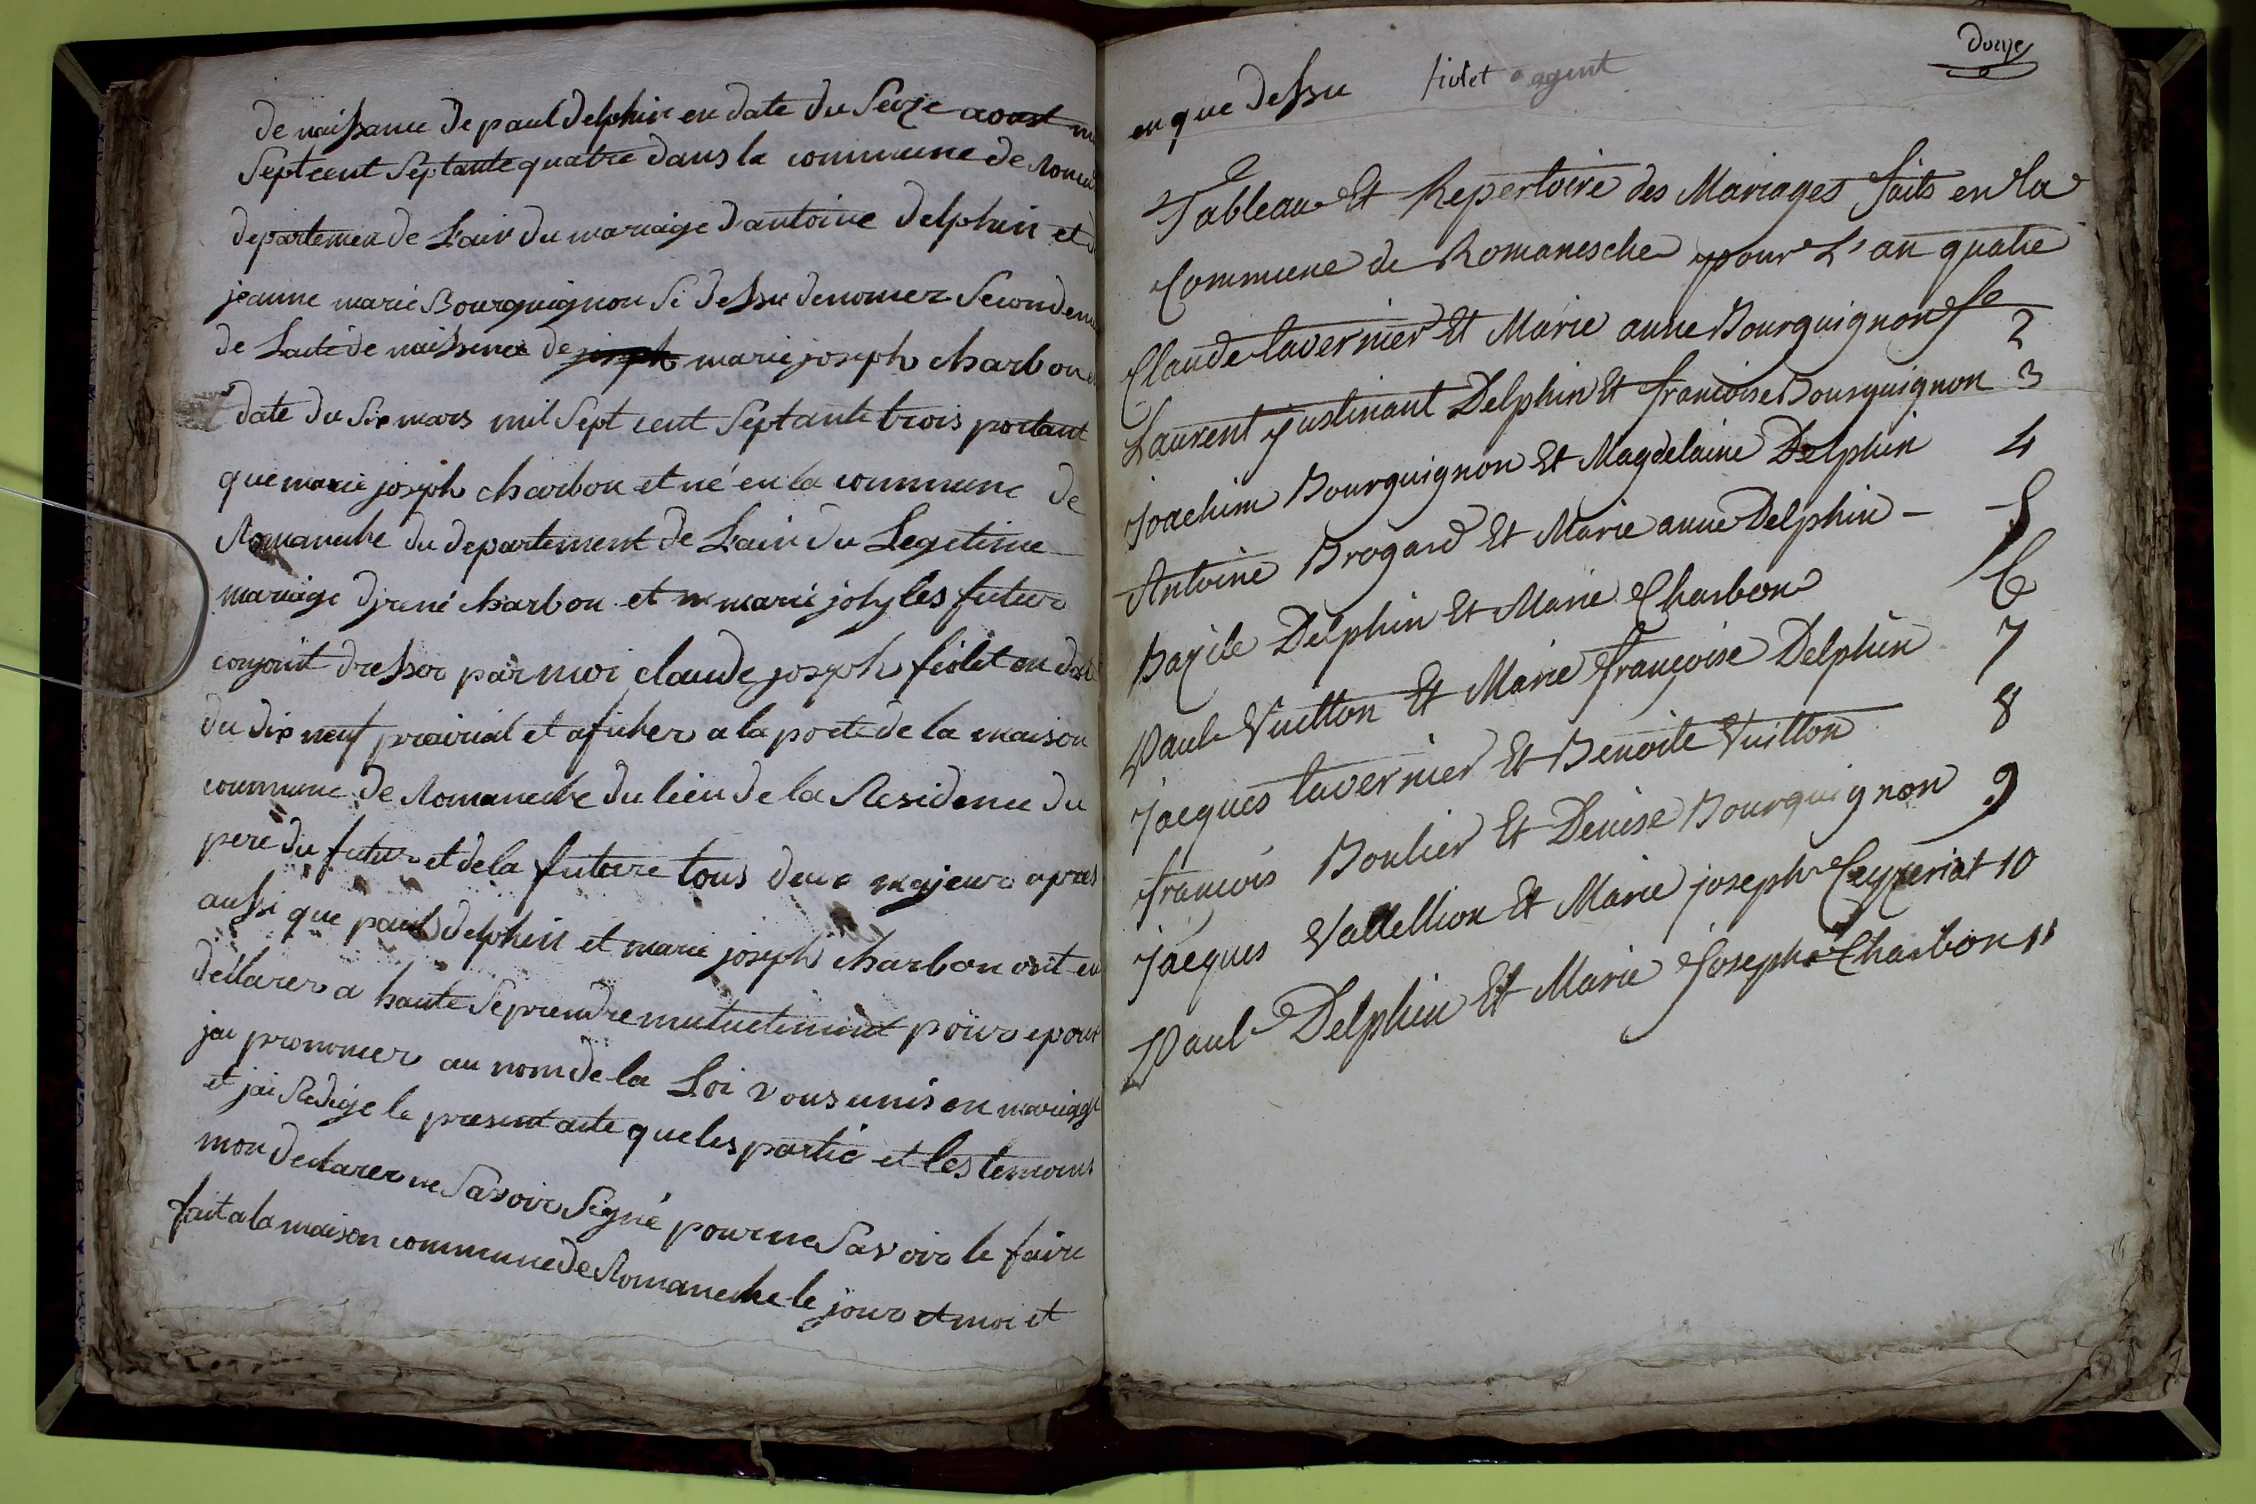 de naissance de paul delphin en date du Seize aoust
Sept cent Septante quatre dans la commune de
departemen de Lain du mariage dantoine delphin et
jeanne marie Bourguignon Si dessu denomer Secondem
de Lacte de naissence de joseph marie joseph charbon
date du Six mars mil Sept cent Septante trois portant
que marie joseph charbon et né en la commune de
Romaneche du departement de Lain du Legetime
mariage drené charbon et marie joly les futur
conjoint dresser par moi claude joseph fiolet en
du dix neuf prairial et aficher a la porte de la maison
commune de Romaneche du lieu de la Residence du
pere du futur et de la future tous deux majeur apres
aussi que paul delphin et marie joseph charbon ont eu
déclarer a haute Se prendre mutuellement pour epoux
jai prononcer au nom de la Loi vous unis en mariage
et jai Redigé le present acte que les partie et les temoins
mon declarer ne Savoir Signé pour ne Savoir le faire
fait a la maison commune de Romaneche le jour et moi et
douze
en que dessu fiolet agent
Tableau Et Repertoire des Mariages faits en la
Commune de Romanesche pour L'an quatre
Claude tavernier Et Marie anne Bourguignon fo 2
Laurent justinant Delphin Et francoise Bourguignon 3
joachim Bourguignon Et Magdelaine Delphin 4
Antoine Brogard Et Marie anne Delphin - 5
Bazile Delphin Et Marie Charbon 6
Paul Vuitton Et Marie françoise Delphin 7
jacques tavernier Et Benoite Vuitton 8
francois Boulier Et Denise Bourguignon 9
jacques Vallellion Et Marie joseph Ceyzeriat 10
Paul Delphin Et Marie Joseph Charbon 11